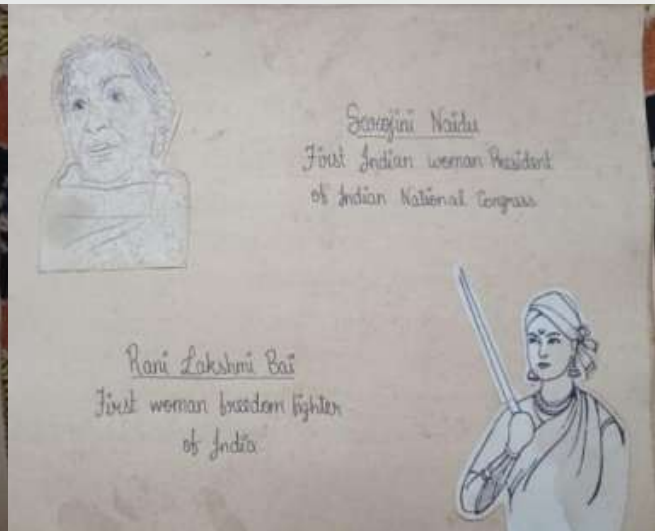 Sarojini Naidu
First Indian woman President
of Indian National Congress
Rani Lakshmi Bai
First woman freedom fighter
of India